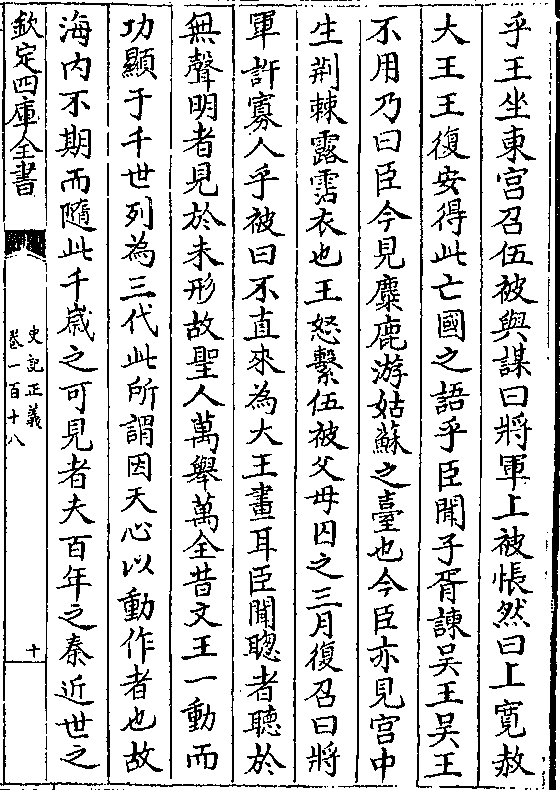 乎王坐東宫召伍被與謀曰將軍上被悵然曰上寛赦
大王王復安得此亡國之語乎臣聞子胥諫吳王吳王
不用乃曰臣今見麋鹿游姑蘇之臺也今臣亦見宫中
生荆棘露霑衣也王怒繫伍被父母囚之三月復召曰將
軍許寡人乎被曰不直來為大王畫耳臣聞聰者聽於
無聲明者見於未形故聖人萬舉萬全昔文王一動而
功顯于千世列為三代此所謂因天心以動作者也故
海内不期而隨此千歳之可見者夫百年之秦近世之
欽定四庫全書
史記正義
卷一百十八
十